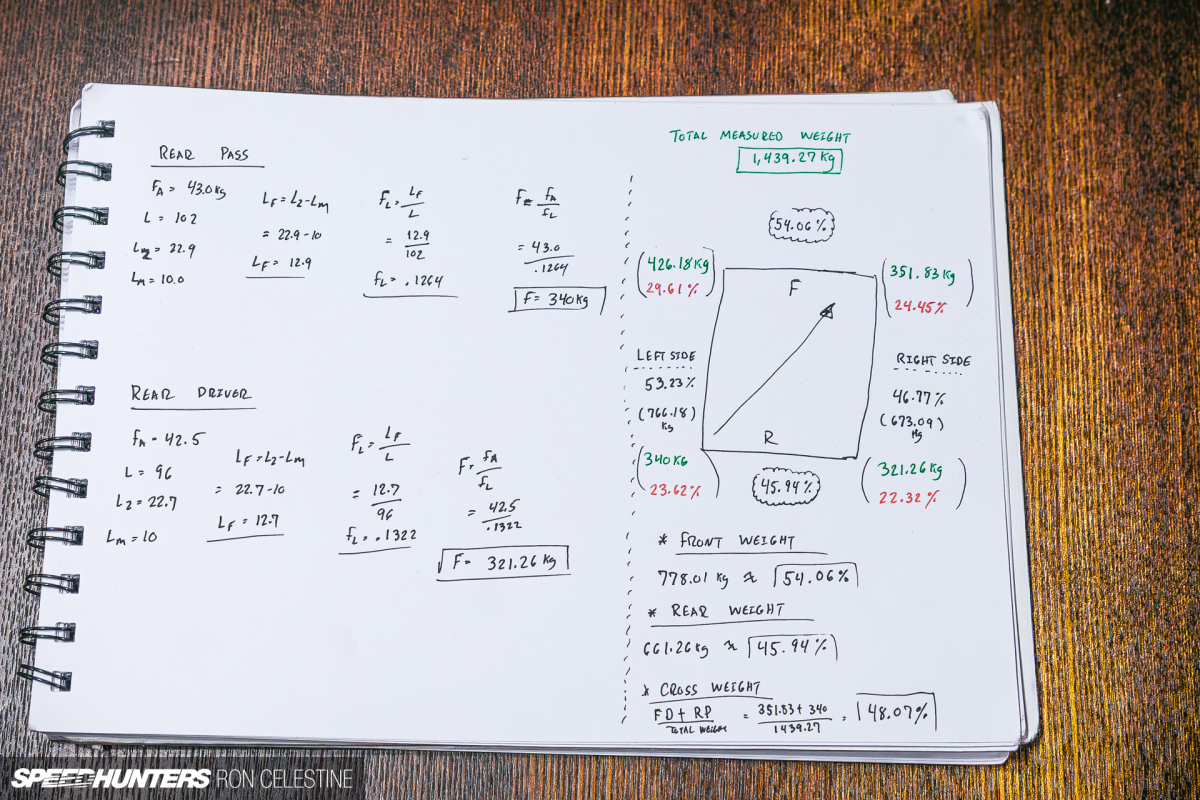 REAR PASS
FA = 43.0kg
L = 102
L2 = 22.9
Lm = 10.0
LF = L2-Lm
= 22.9-10
LF = 12.9
FL = LF/L
= 12.9/102
fL = .1264
F = fA/fL
= 43.0/.1264
F= 340kg
REAR DRIVER
fA = 42.5
L = 96
L2 = 22.7
Lm = 10
LF = L2-LM
= 22.7-10
LF = 12.7
FL = LF/L
= 12.7/96
fL = .1322
F= fA/fL
= 42.5/.1322
F= 321.26kg
TOTAL MEASURED WEIGHT
1,439.27kg
54.06%
426.18kg
29.61%
F
351.83kg
24.45%
LEFT SIDE
53.23%
(766.18)
kg
RIGHT SIDE
46.77%
(673.09)
kg
R
340KG
23.62%
45.94%
321.26kg
22.32%
* FRONT WEIGHT
778.01 kg ≈ 54.06%
* REAR WEIGHT
661.26kg ≈ 45.94%
* CROSS WEIGHT
FD + RP / TOTAL WEIGHT = 351.83 + 340 / 1439.27 = 48.07%
SPEEDHUNTERS RON CELESTINE